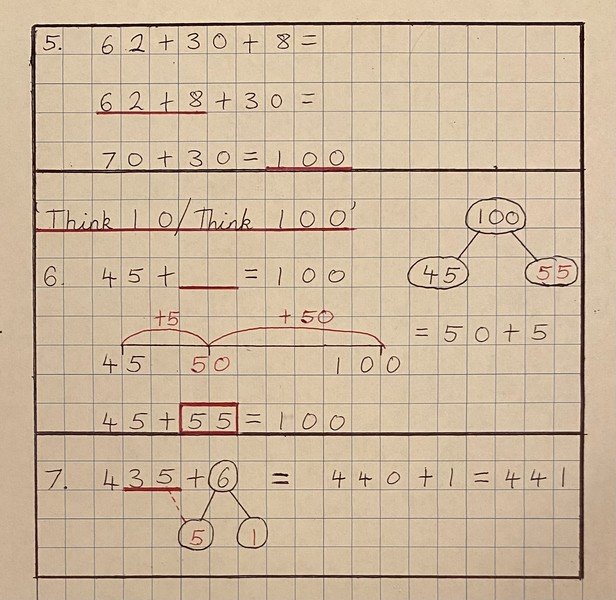 5. 62+30+8=
62+8+30=
70+30=100
'Think 10/Think 100'
100
6. 45+___=100
45 55
+5 +50
=50+5
45 50 100
45+55=100
7. 435+6 = 440+1=441
5 1